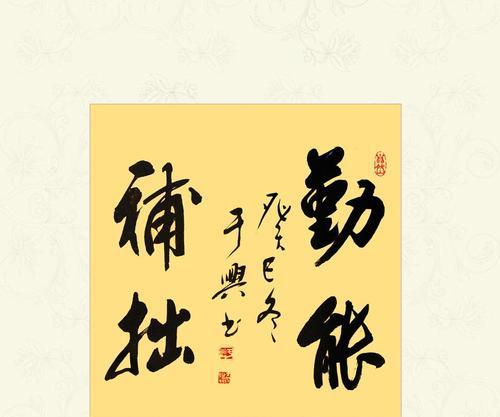 勤能
補拙
癸巳冬
于興书